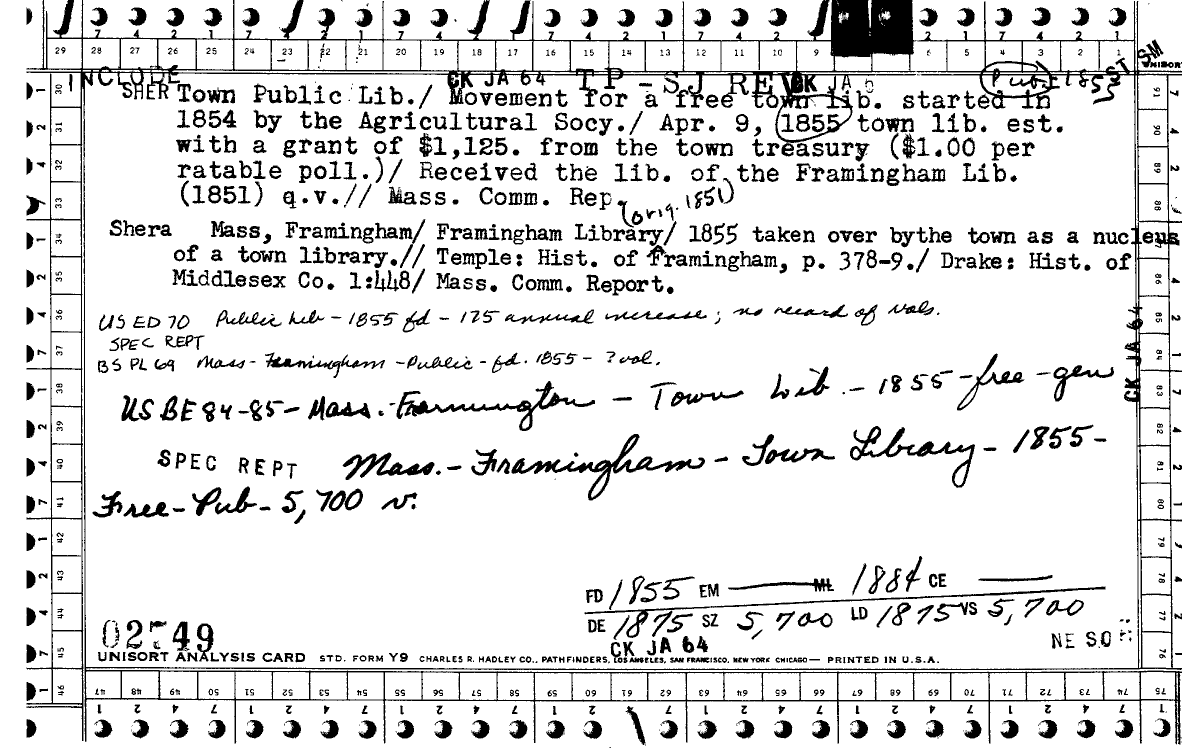 29 28 27 26 25 24 23 22 21 20 19 18 17 16 15 14 13 12 11 10 9 6 5 4 3 2 1
SM
UNISORT
INCLUDE CK JA 64 TP-SJ REV CK JA 6 Pub 1855 ST
SHER Town Public Lib./ Movement for a free town lib. started in
1854 by the Agricultural Socy./ Apr. 9, 1855 town lib. est.
with a grant of $1,125. from the town treasury ($1.00 per
ratable poll.)/ Received the lib. of the Framingham Lib.
(1851) q.v.// Mass. Comm. Rep.
(orig. 1851)
Shera Mass, Framingham/ Framingham Library/ 1855 taken over bythe town as a nucleus
of a town library.// Temple: Hist. of Framingham, p. 378-9./ Drake: Hist. of
Middlesex Co. 1:448/ Mass. Comm. Report.
US ED 70 Public Lib - 1855 fd - 175 annual increase; no record of vols.
SPEC REPT
BS PL 69 Mass - Framingham - Public - fd. 1855 - ? vol.
CK JA 64
US BE 84-85 - Mass. Framington - Town Lib. - 1855 - free - gen
SPEC REPT Mass. - Framingham - Town Library - 1855 -
Free - Pub - 5,700 v.
FD 1855 EM ML 1884 CE
DE 1875 SZ 5,700 LD 1875 VS 5,700
CK JA 64
NE SO
02749
UNISORT ANALYSIS CARD STD. FORM Y9 CHARLES R. HADLEY CO., PATHFINDERS, LOS ANGELES, SAN FRANCISCO, NEW YORK CHICAGO — PRINTED IN U.S.A.
47 48 49 50 51 52 53 54 55 56 57 58 59 60 61 62 63 64 65 66 67 68 69 70 71 72 73 74 75